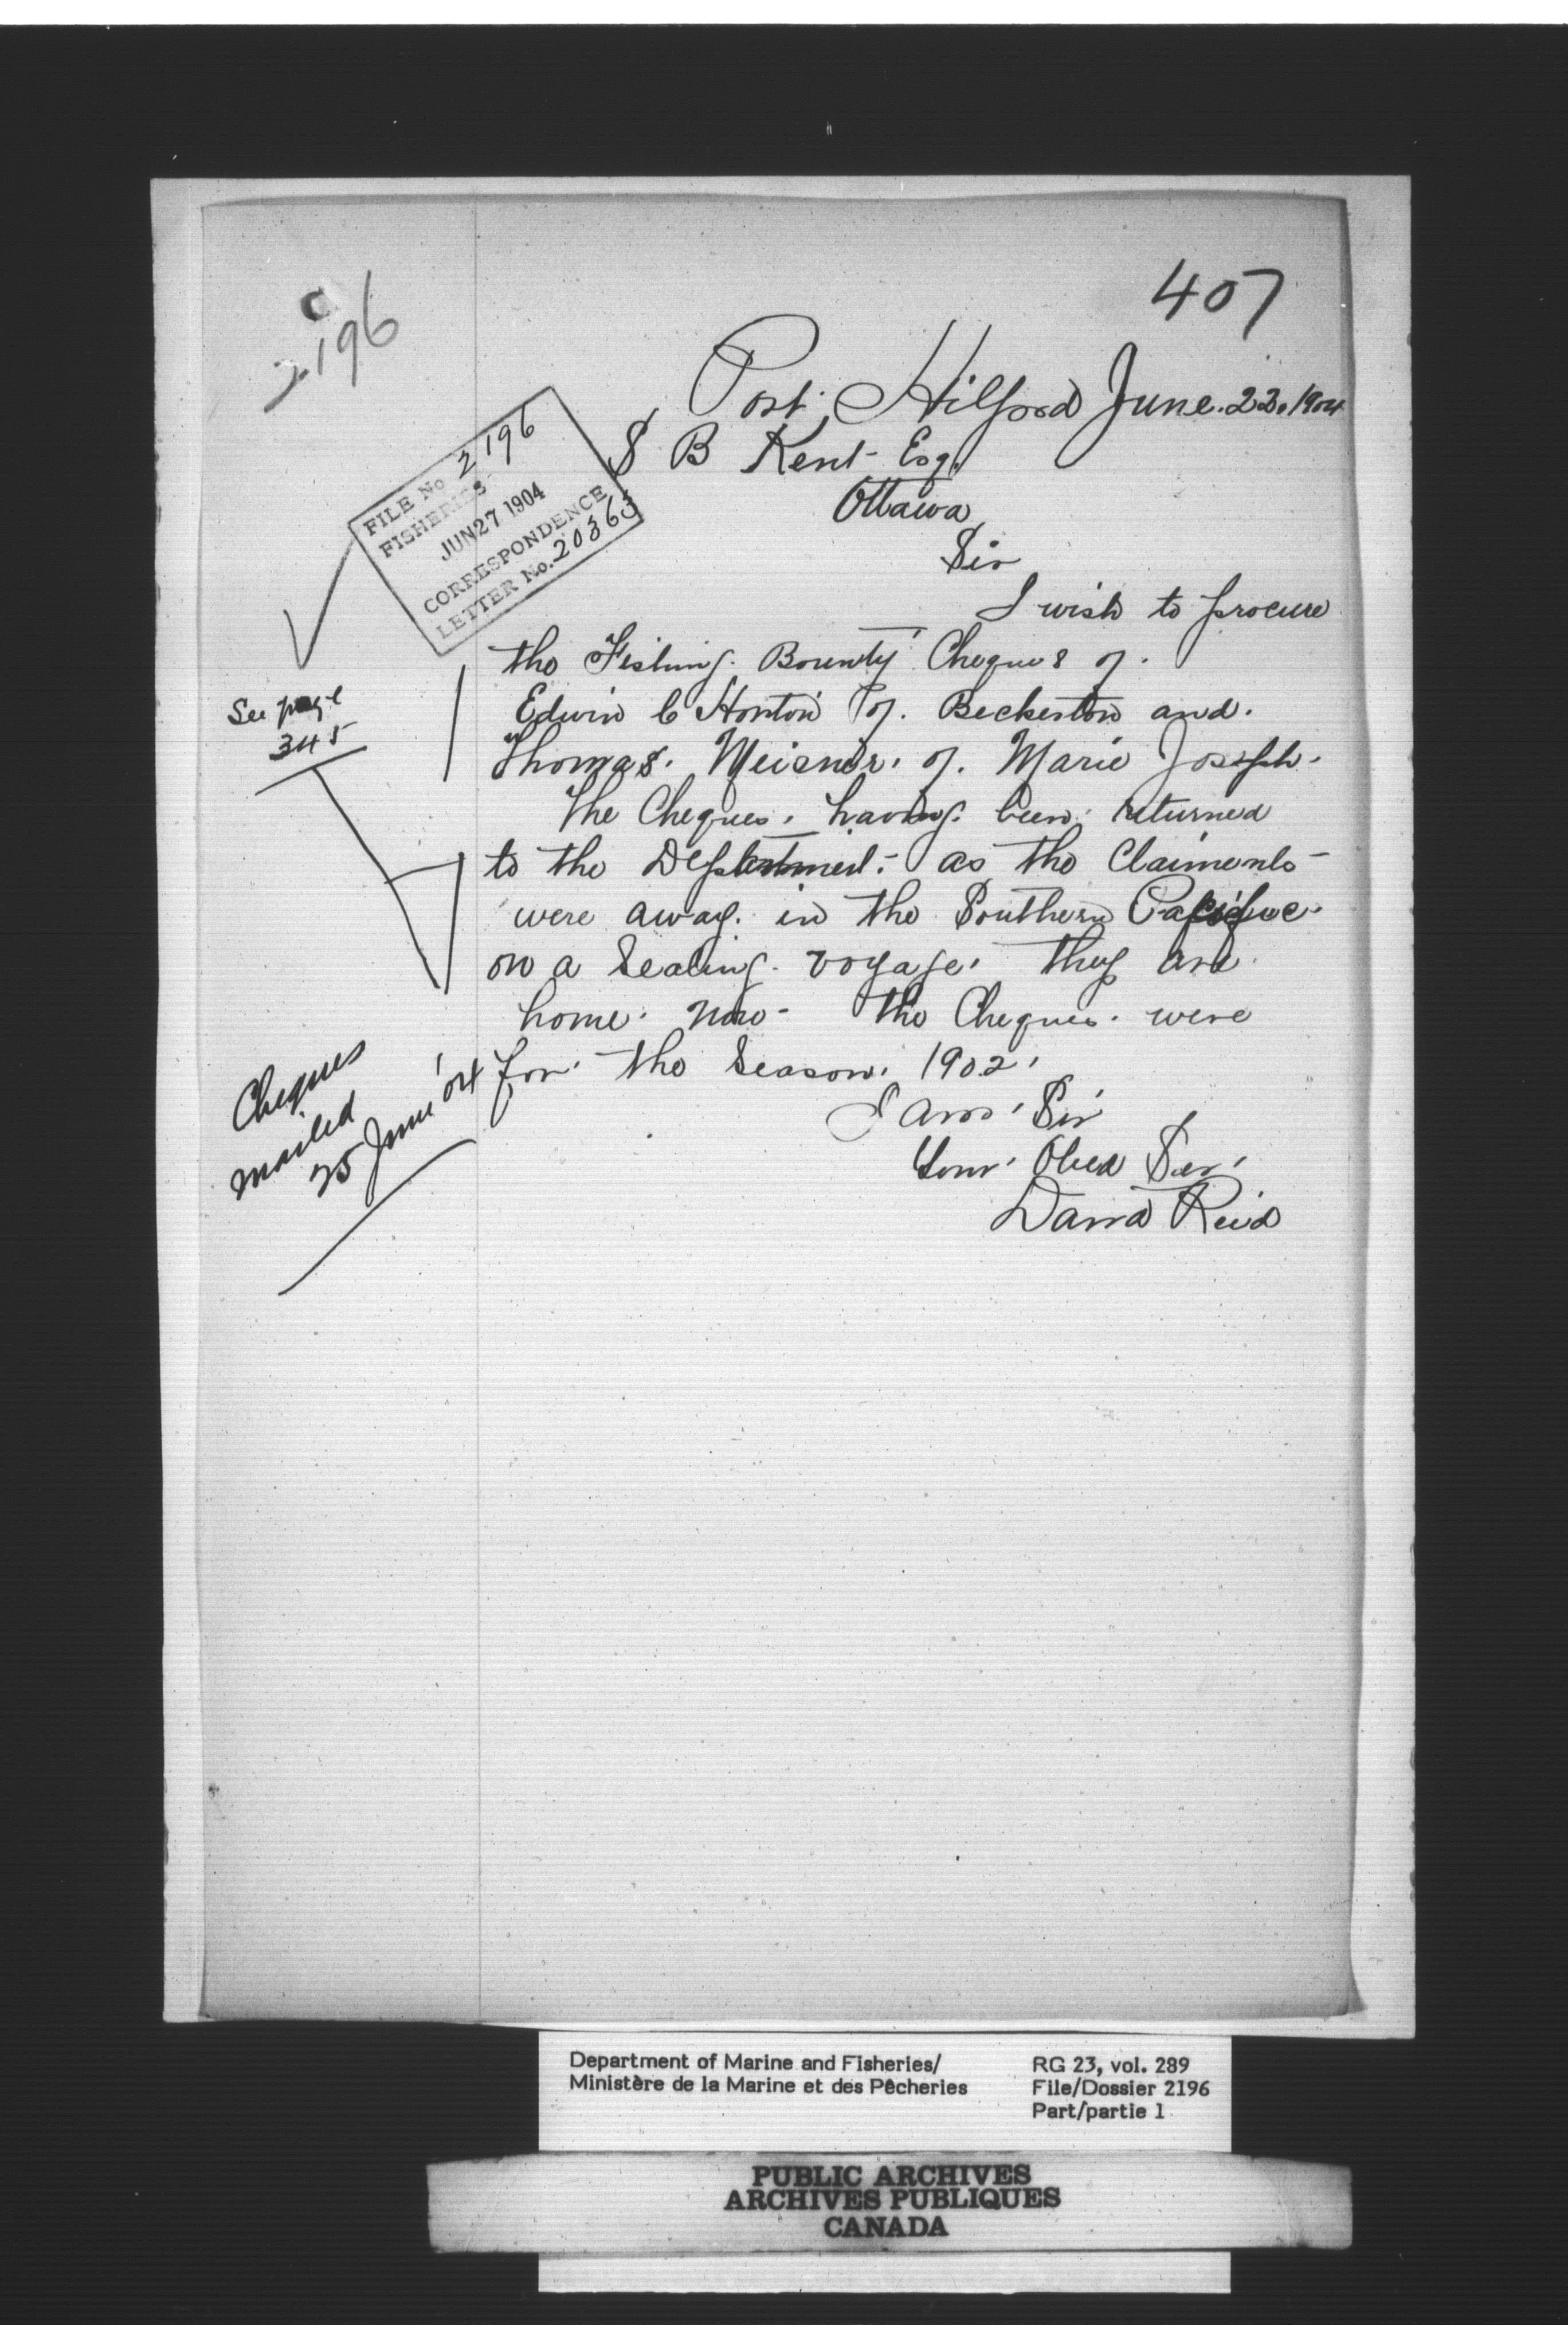 407
2196
Port Hilford June. 23. 1904
FILE No 2196
FISHERIES
JUN 27 1904
CORRESPONDENCE
LETTER No. 20363
S B Kent Esq.
Ottawa
Sir
I wish to procure
the Fishing Bounty Cheques of.
Edwin C Horton of. Beckerton and.
Thomas. Meisner. of. Marie Joseph.
The Cheques. having been returned
to the Department. as the Claiments
were away. in the Southern Pacific
on a Sealing voyage. they are
home. now- The Cheques. were
for. the Season. 1902.
I am. Sir
Your. Obed Ser.
David Reid
See page
345
Cheques
mailed
25 June '04
Department of Marine and Fisheries/
Ministère de la Marine et des Pêcheries
RG 23, vol. 289
File/Dossier 2196
Part/partie 1
PUBLIC ARCHIVES
ARCHIVES PUBLIQUES
CANADA